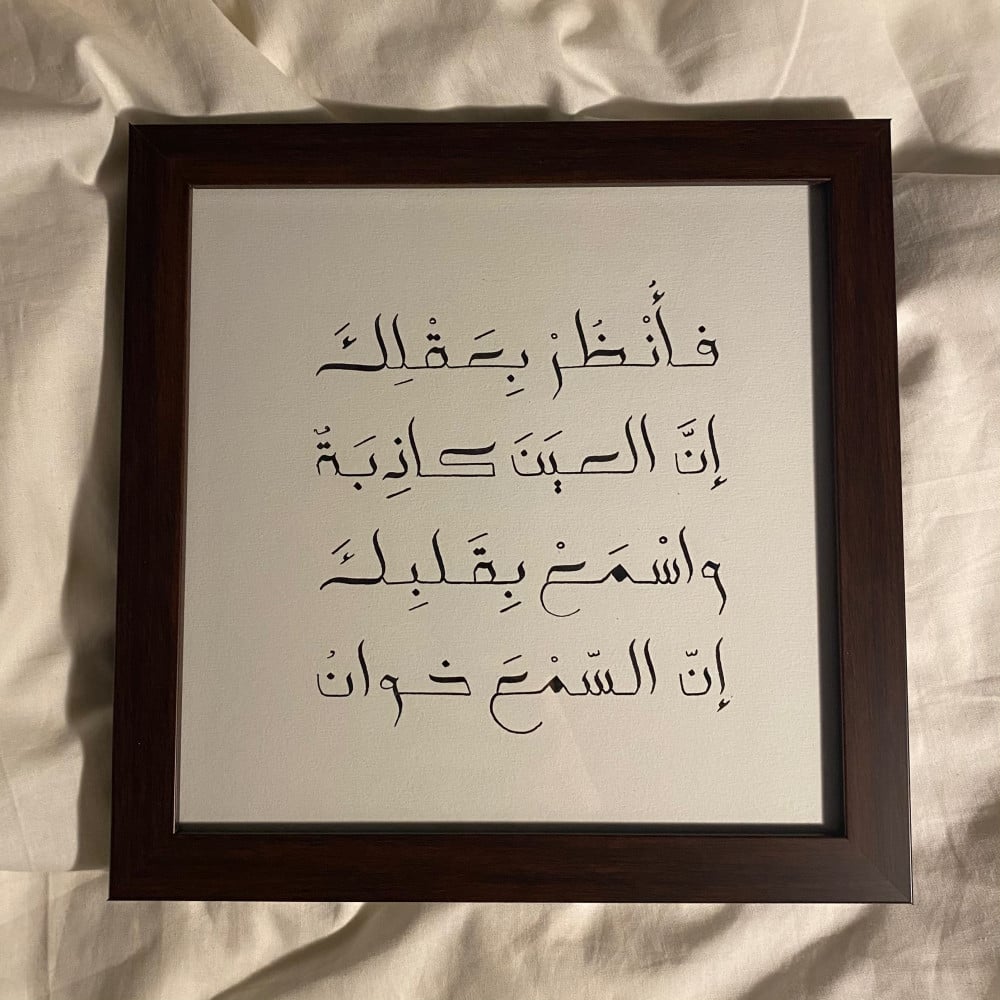 فأُنْظُرْ بِعَقْلِكَ
إنَّ العيَنَ كاذِبَةٌ
واسْمَعْ بِقَلبِكَ
إنّ السّمْعَ خوانُ